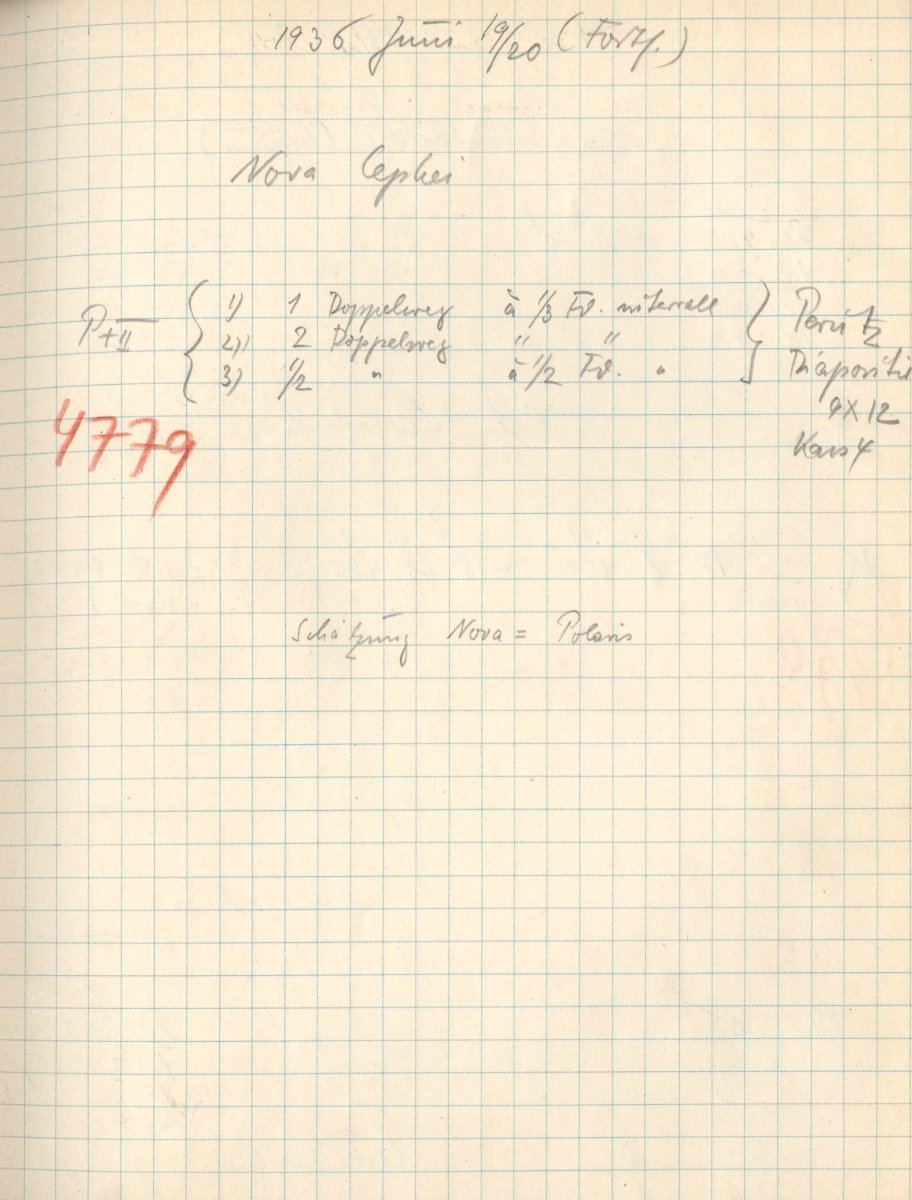 1936 Juni 19/20 (Forts.)
Nova Cephei
P+II { 1) 1 Doppelweg à 1/3 Fd. intervall } Perutz
2) 2 Doppelweg " "
3) 1/2 " à 1/2 Fd. " Diapositiv
9X12
4779
Schätzung Nova = Polaris